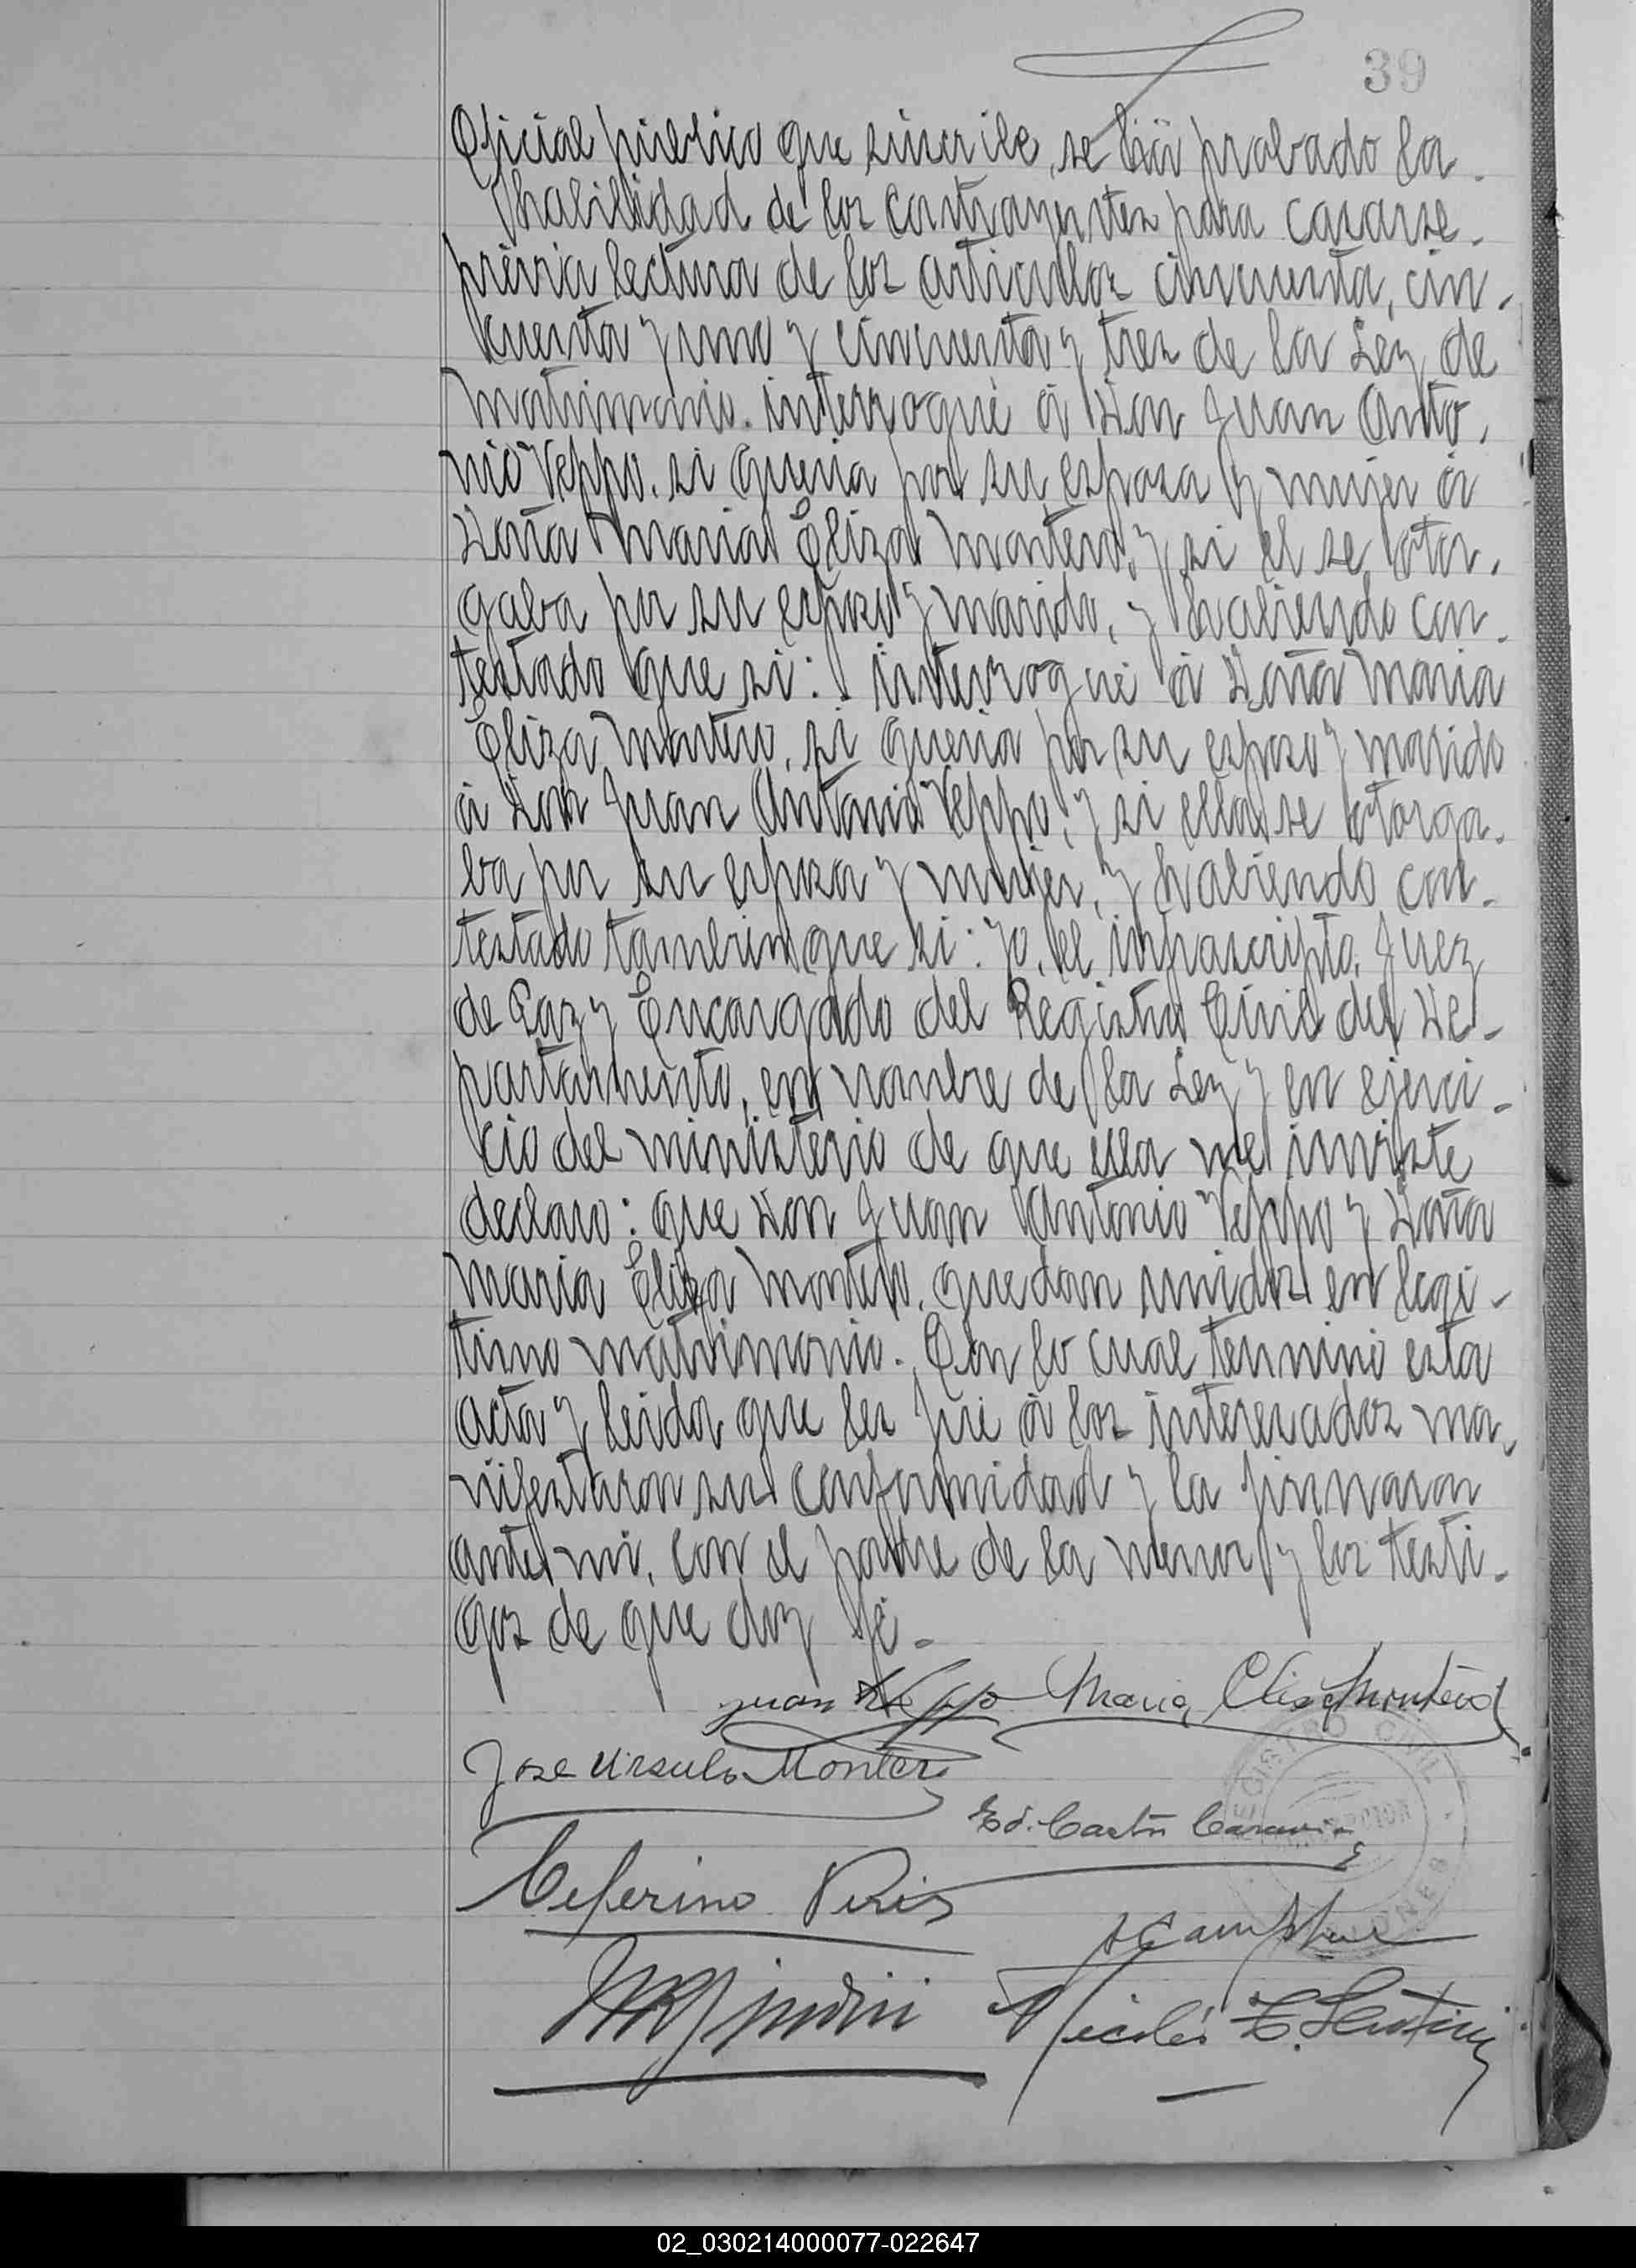 39
Oficial público que suscribe, se há probado la
habilidad de los contrayentes para casarse.
prévia lectura de los articulos cincuenta, cin-
cuenta y uno y cincuenta y tres de la Ley de
matrimonio. interrogué á Don Juan Anto-
nio Veppo. si queria por su esposa y mujer á
Doña Maria Eliza Montero, y si el se otor-
gaba por su esposo y marido, y habiendo con-
testado que si: interrogué á Doña Maria
Eliza Montero, si queria por su esposo y marido
á Don Juan Antonio Veppo, y si ella se otorga-
ba por su esposa y mujer, y habiendo con-
testado tambien que si: yo, el infrascripto, Juez
de Paz y Encargado del Registro Civil del De-
partamento, en nombre de la Ley y en ejerci-
cio del ministerio de que ella me inviste
declaro: que Don Juan Antonio Veppo y Doña
Maria Eliza Montero, quedan unidos en legi-
timo matrimonio. Con lo cual terminó esta
acta y leida que les fué á los interesados ma-
nifestaron su conformidad y la firmaron
ante mi, con el padre de la menor y los testi-
gos de que doy fé.-
Juan Veppo Maria Elisa Montero
Jose Ursulo Montero
Ed. Castro
Ceferino Piris
Nicolás
REGISTRO CIVIL
MISIONES
02_030214000077-022647